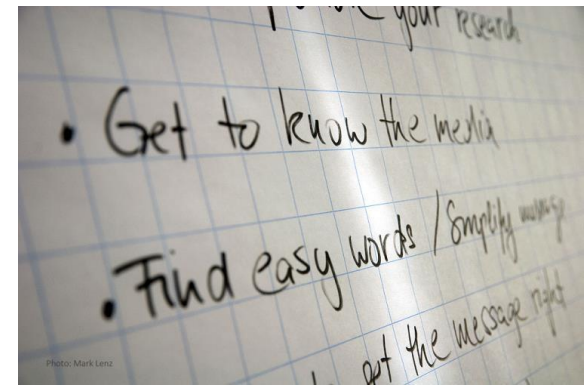 your research
• Get to know the media
• Find easy words / Simplify message
get the message right
Photo: Mark Lenz